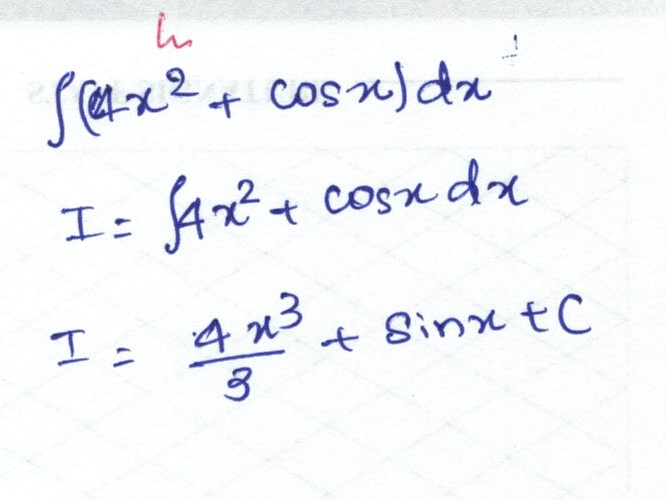 ∫(4x² + cosx)dx
I = ∫4x² + cosx dx
I = 4x³/3 + sinx + C